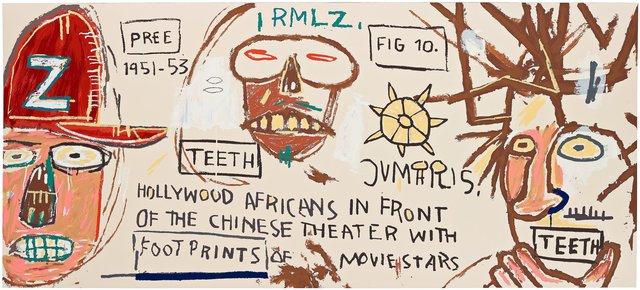 PREE
1951-53
Z
RMLZ.
FIG 10.
TEETH
JVMARIS.
HOLLYWOOD AFRICANS IN FRONT
OF THE CHINESE THEATER WITH
FOOTPRINTS OF MOVIE STARS
TEETH